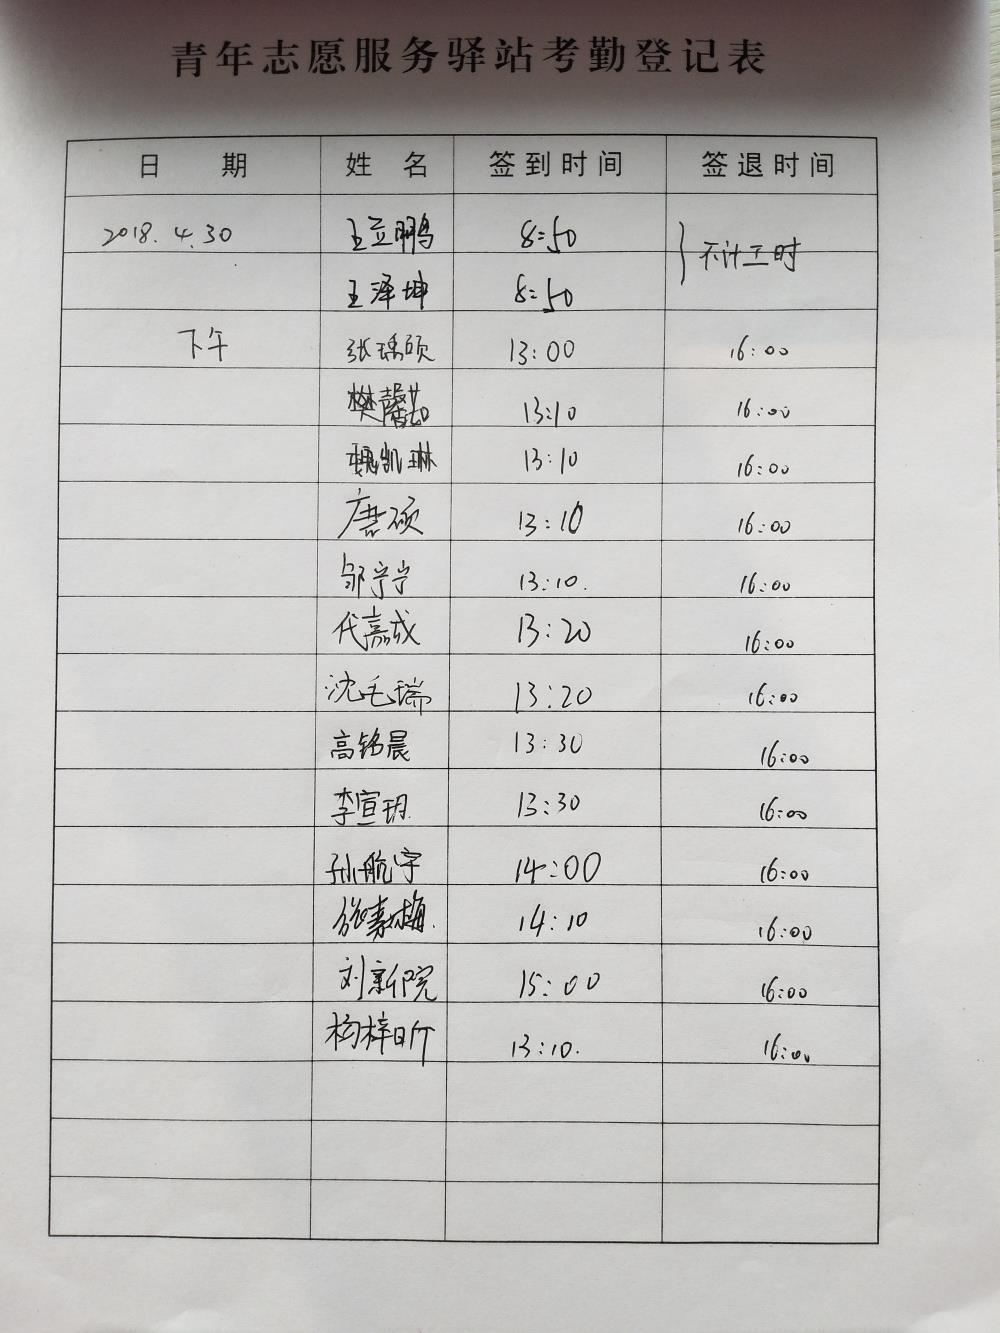 青年志愿服务驿站考勤登记表
日 期 姓 名 签到时间 签退时间
2018.4.30 王立鹏 8:50 不计工时
王泽坤 8:50
下午 张瑀硕 13:00 16:00
樊馨茹 13:10 16:00
魏凯琳 13:10 16:00
唐硕 13:10 16:00
邹宁宁 13:10. 16:00
代嘉成 13:20 16:00
沈毛瑞 13:20 16:00
高铭晨 13:30 16:00
李宣玥 13:30 16:00
孙航宇 14:00 16:00
14:10 16:00
刘新院 15:00 16:00
杨梓昕 13:10. 16:00